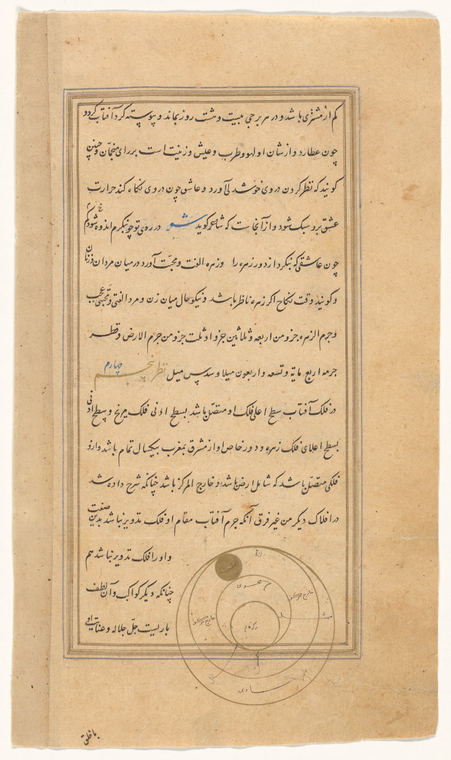 کم از مشتری باشد و در هر برجی بیست و شت روز بماند و پیوسته گرد آفتاب گردد
چون عطارد و از شان او لهو و طرب و عیش و زینت است بر رای منجمان و چنین
گویند که نظر کردن در وی خوشدلی آورد و عاشق چون در وی نگاه کند حرارت
عشق برو سبک شود و از آنجاست که شاعر گوید شعر در روی تو چو بنگرم اندوه شود کم
چون عاشقی که بنگرد از دور زهره را و زهره الفت و محبت آورد در میان مردان و زنان
و گویند وقت نکاح اگر زهره ناظر باشد و نیکو حال میان زن و مرد الفتی و محبتی عجب
و جرم الزهره جزو من اربعه و ثلاثین جزؤا و ثلث جزو من جرم الارض و قطر
جرمه اربع مایة و تسعه و اربعون میلا و سدس میل نظر پنجم چهارم
در فلک آفتاب سطح اعلی فلک او متصل باشد بسطح ادنی فلک مریخ و سطح ادنی
بسطح اعلای فلک زهره و دور خاص او از مشرق بمغرب بیکسال تمام باشد و او را
فلکی متصل باشد که شامل ارض باشد و خارج المرکز باشد چنانکه شرح داده شد
در افلاک دیگر من غیر فرق آنکه جرم آفتاب مقام او فلک تدویر نباشد بدین صفت
و او را فلک تدویر نباشد هم
چنانکه دیگر کواکب و آن لطف
باریست جل جلاله و عنایت او
با خلق